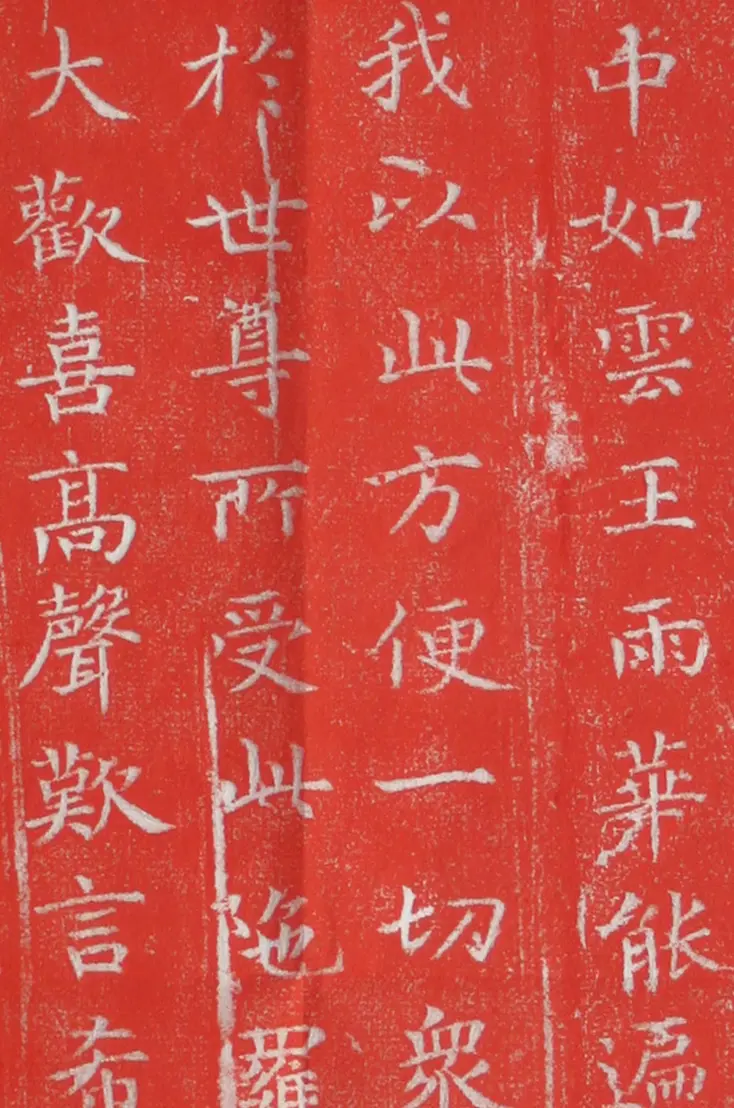 中如雲王雨華能遍
我以此方便一切衆
於世尊所受此陁羅
大歡喜高聲歎言希